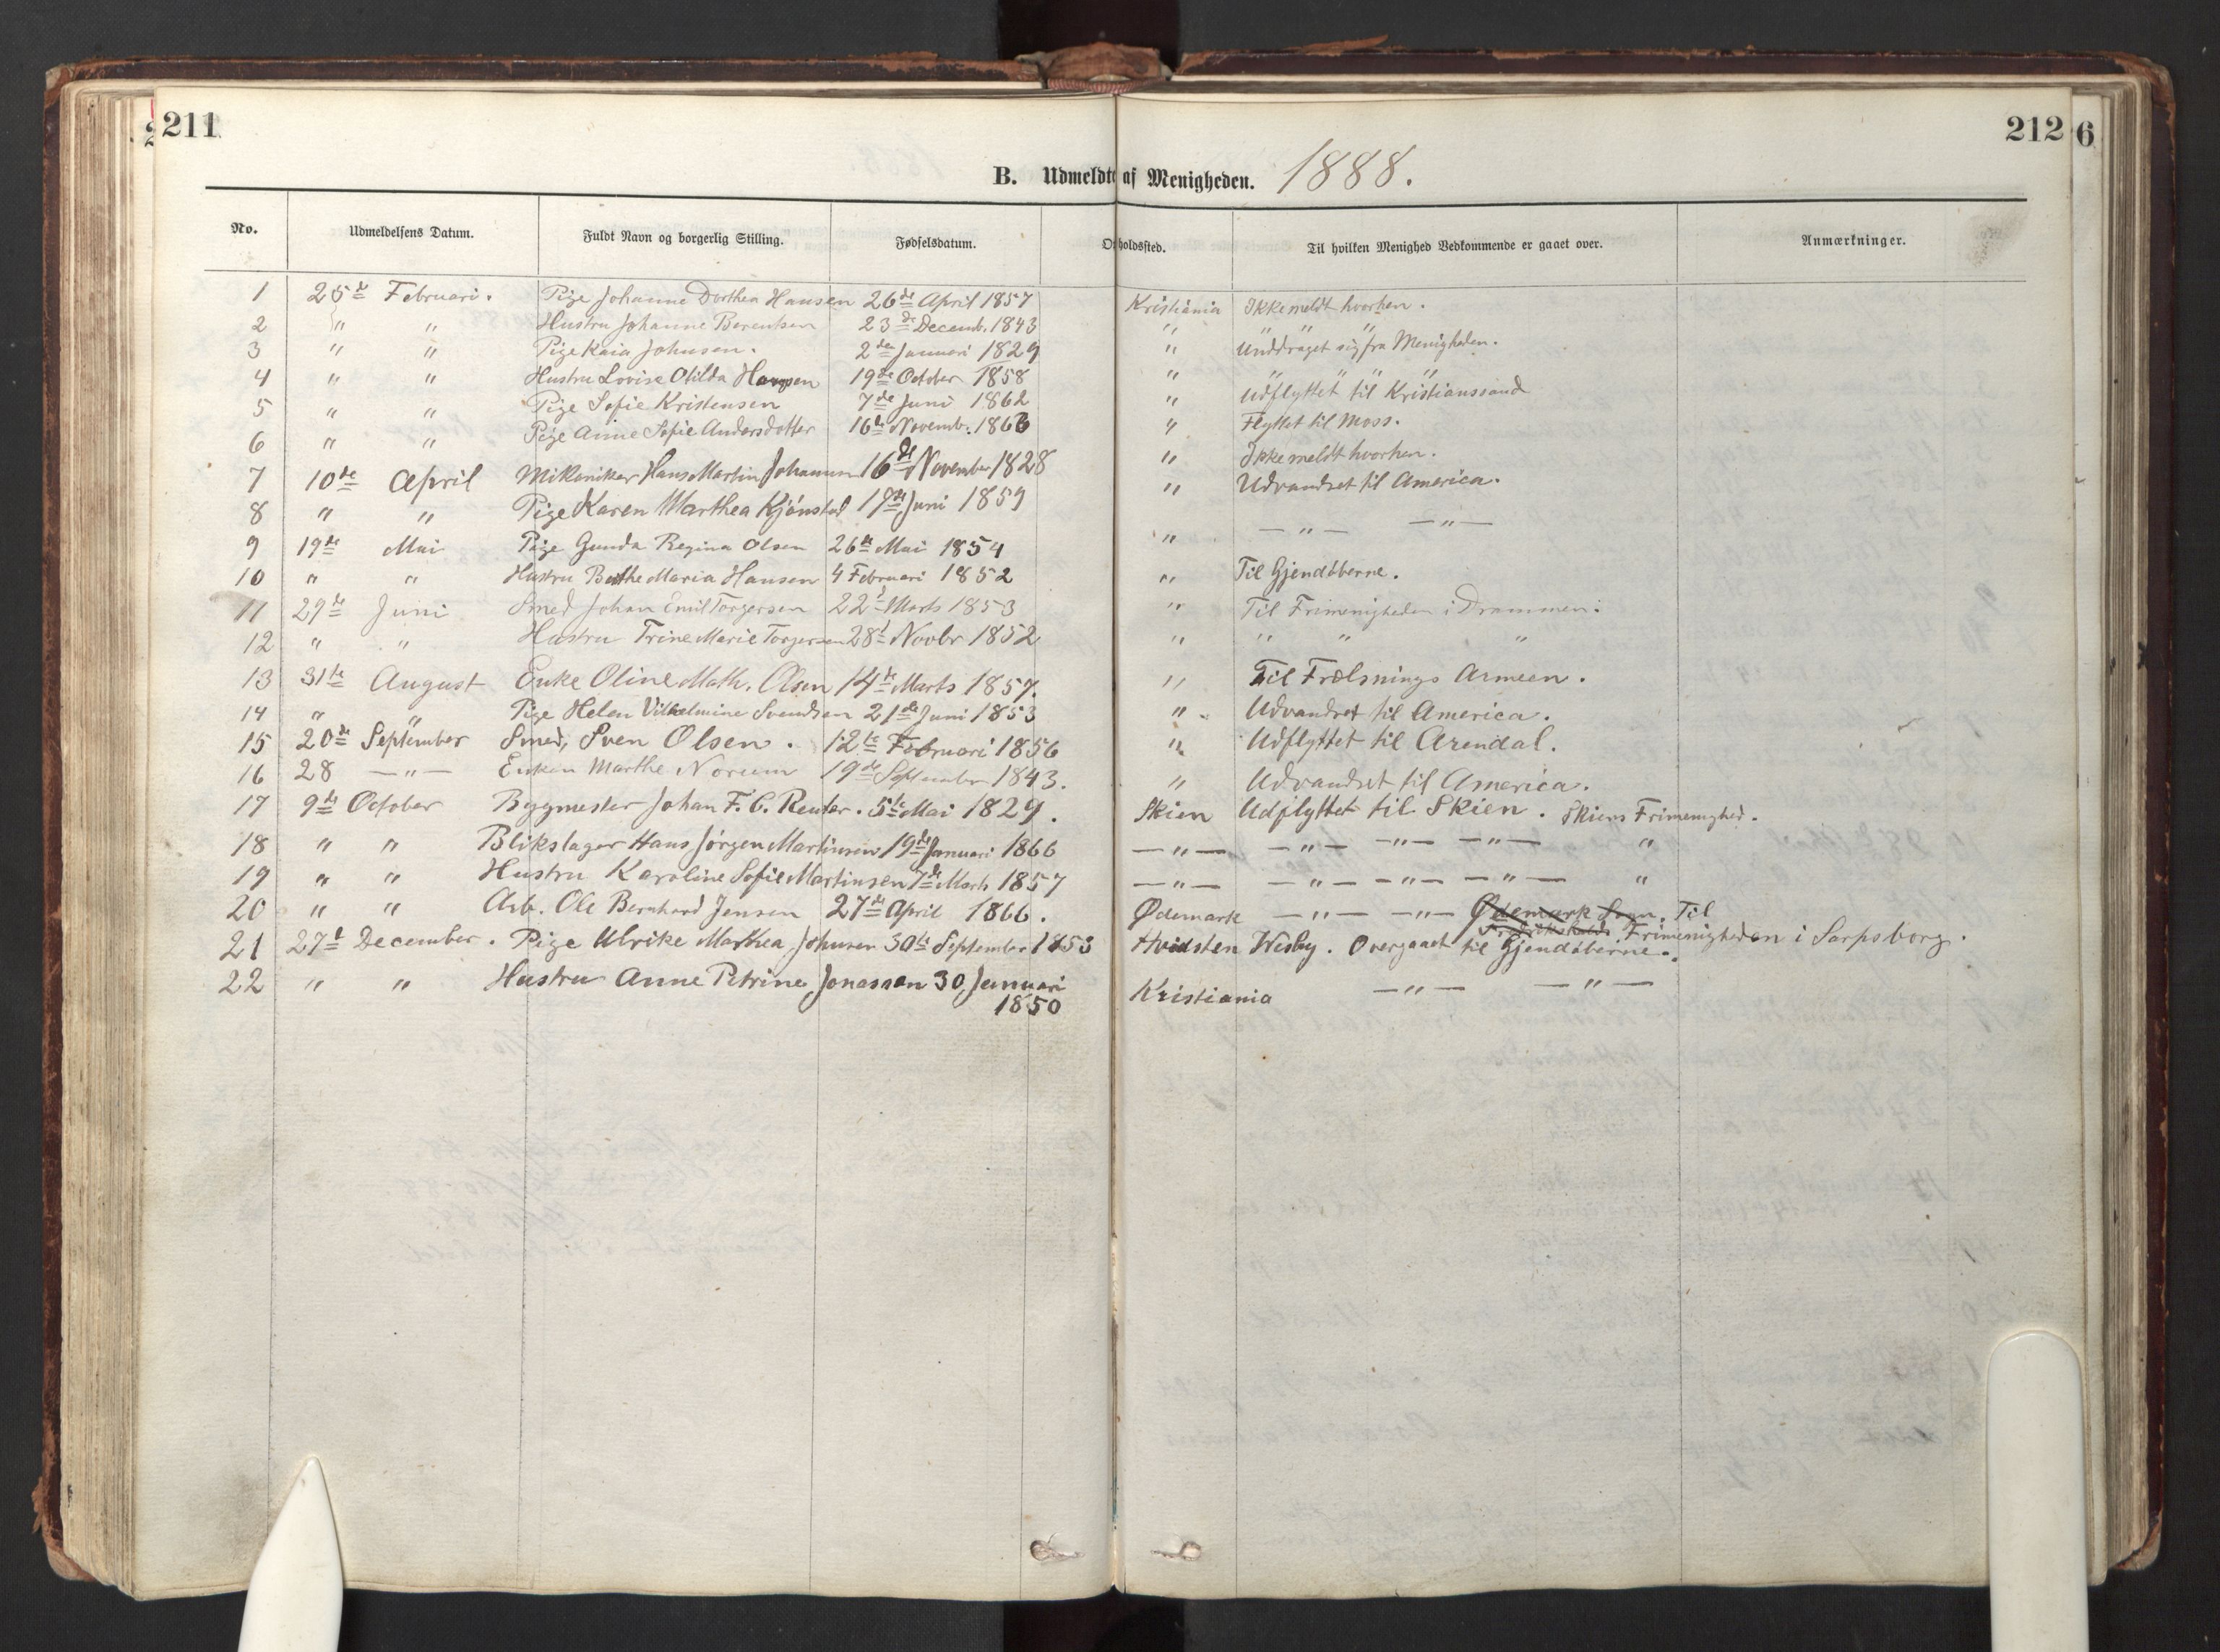 211
212
6
B. Udmeldte af Menigheden. 1888.
No. Udmeldelsens Datum. Fuldt Navn og borgerlig Stilling. Fødselsdatum. Opholdssted. Til hvilken Menighed Vedkommende er gaaet over. Anmærkninger.
1 25de Februari. Pige Johanne Dorthea Hansen 26de April 1857 Kristiania Ikke meldt hvorhen.
2 " " Hustru Johanne Berentsen 23de Decemb. 1843 " " " "
3 " " Pige Kaia Johnsen. 2den Januari 1829 " Unddraget sig fra Menigheden.
4 " " Hustru Lovise Otilda Hansen 19de October 1858 " " " "
5 " " Pige Sofie Kristensen 7de Juni 1862 " Udflyttet til Kristianssand
6 " " Pige Anne Sofie Andersdotter 16de Novemb. 1863 " Flyttet til Moss.
7 10de April Mikaniker Hans Martin Johannsen 16de November 1828 " Ikke meldt hvorhen.
8 " " Pige Karen Marthea Kjønstad 17de Juni 1859 " Udvandret til America.
9 19de Mai Pige Gunda Regina Olsen 26te Mai 1854 " — " — — " —
10 " " Hustru Berthe Maria Hansen 4 Februari 1852 " Til Gjendøberne.
11 29de Juni Smed Johan Emil Torgersen 22d Marts 1853 " Til Frimenigheden i Drammen.
12 " " Hustru Trine Marie Torgersen 28d Novbr 1852 " " " "
13 31te August Enke Oline Math. Olsen 14te Marts 1857. " Til Frelsnings Armeen.
14 " " Pige Helen Vilhelmine Svendsen 21de Juni 1853 " Udvandret til America.
15 20de September Smed, Sven Olsen. 12te Februari 1856 " Udflyttet til Arendal.
16 28 — " — Enken Marthe Norum 19de September 1843. " Udvandret til America.
17 9de October Bygmester Johan F. C. Reuter. 5te Mai 1829. Skien Udflyttet til Skien. Skiens Frimenighed.
18 " " Blikslager Hans Jørgen Martinsen 19de Januari 1866 — " — — " — — " — — " — "
19 " " Hustru Karoline Sofie Martinsen 7de Marts 1857 — " — — " — — " — — " — "
20 " " Arb. Ole Bernhard Jensen 27de April 1866. Ødemark — " — — " — Ødemark Sogn. Til
Fredrikshalds Frimenigheden i Sarpsborg.
21 27d December. Pige Ulrike Marthea Johnsen 30te September 1853 Hvidsten Wesby. Overgaaet til Gjendøberne.
22 " " Hustru Anne Petrine Jonassen 30 Januari Kristiania — " — — " —
1850